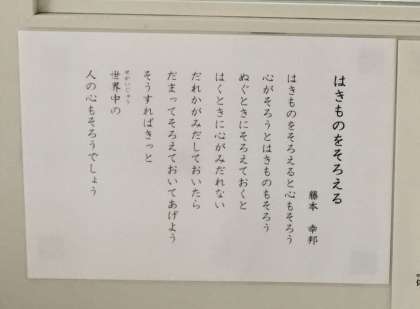 はきものをそろえる
藤本 幸邦
はきものをそろえると心もそろう
心がそろうとはきものもそろう
ぬぐときにそろえておくと
はくときに心がみだれない
だれかがみだしておいたら
だまってそろえておいてあげよう
そうすればきっと
世界中の
せかいじゅう
人の心もそろうでしょう